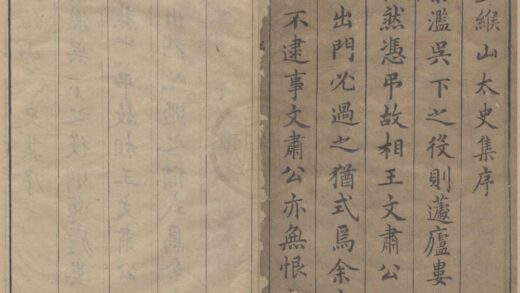 緱山太史集序
濫吳下之役則蘧廬婁
然憑弔故相王文肅公
出門必過之猶式焉余
不逮事文肅公亦無恨